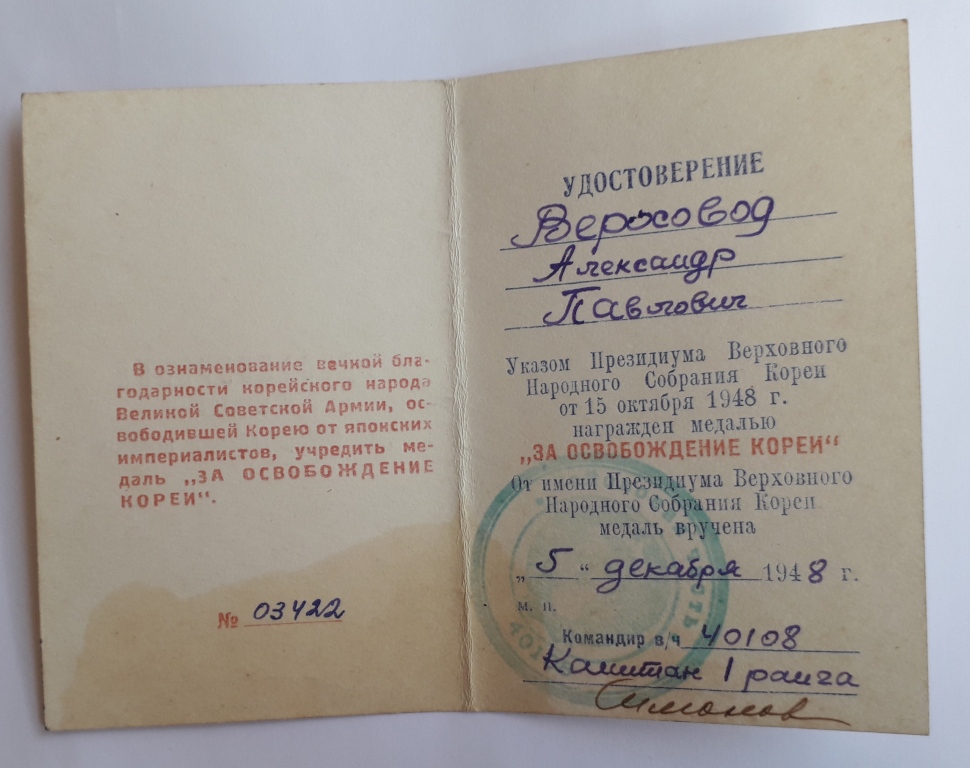 В ознаменование вечной бла-
годарности корейского народа
Великой Советской Армии, ос-
вободившей Корею от японских
империалистов, учредить ме-
даль „ЗА ОСВОБОЖДЕНИЕ
КОРЕИ“.
№ 03422
УДОСТОВЕРЕНИЕ
Веросовод
Александр
Павлович
Указом Президиума Верховного
Народного Собрания Кореи
от 15 октября 1948 г.
награжден медалью
„ЗА ОСВОБОЖДЕНИЕ КОРЕИ“
От имени Президиума Верховного
Народного Собрания Кореи
медаль вручена
„5“ декабря 1948 г.
м. п.
Командир в/ч 40108
Капитан 1 ранга